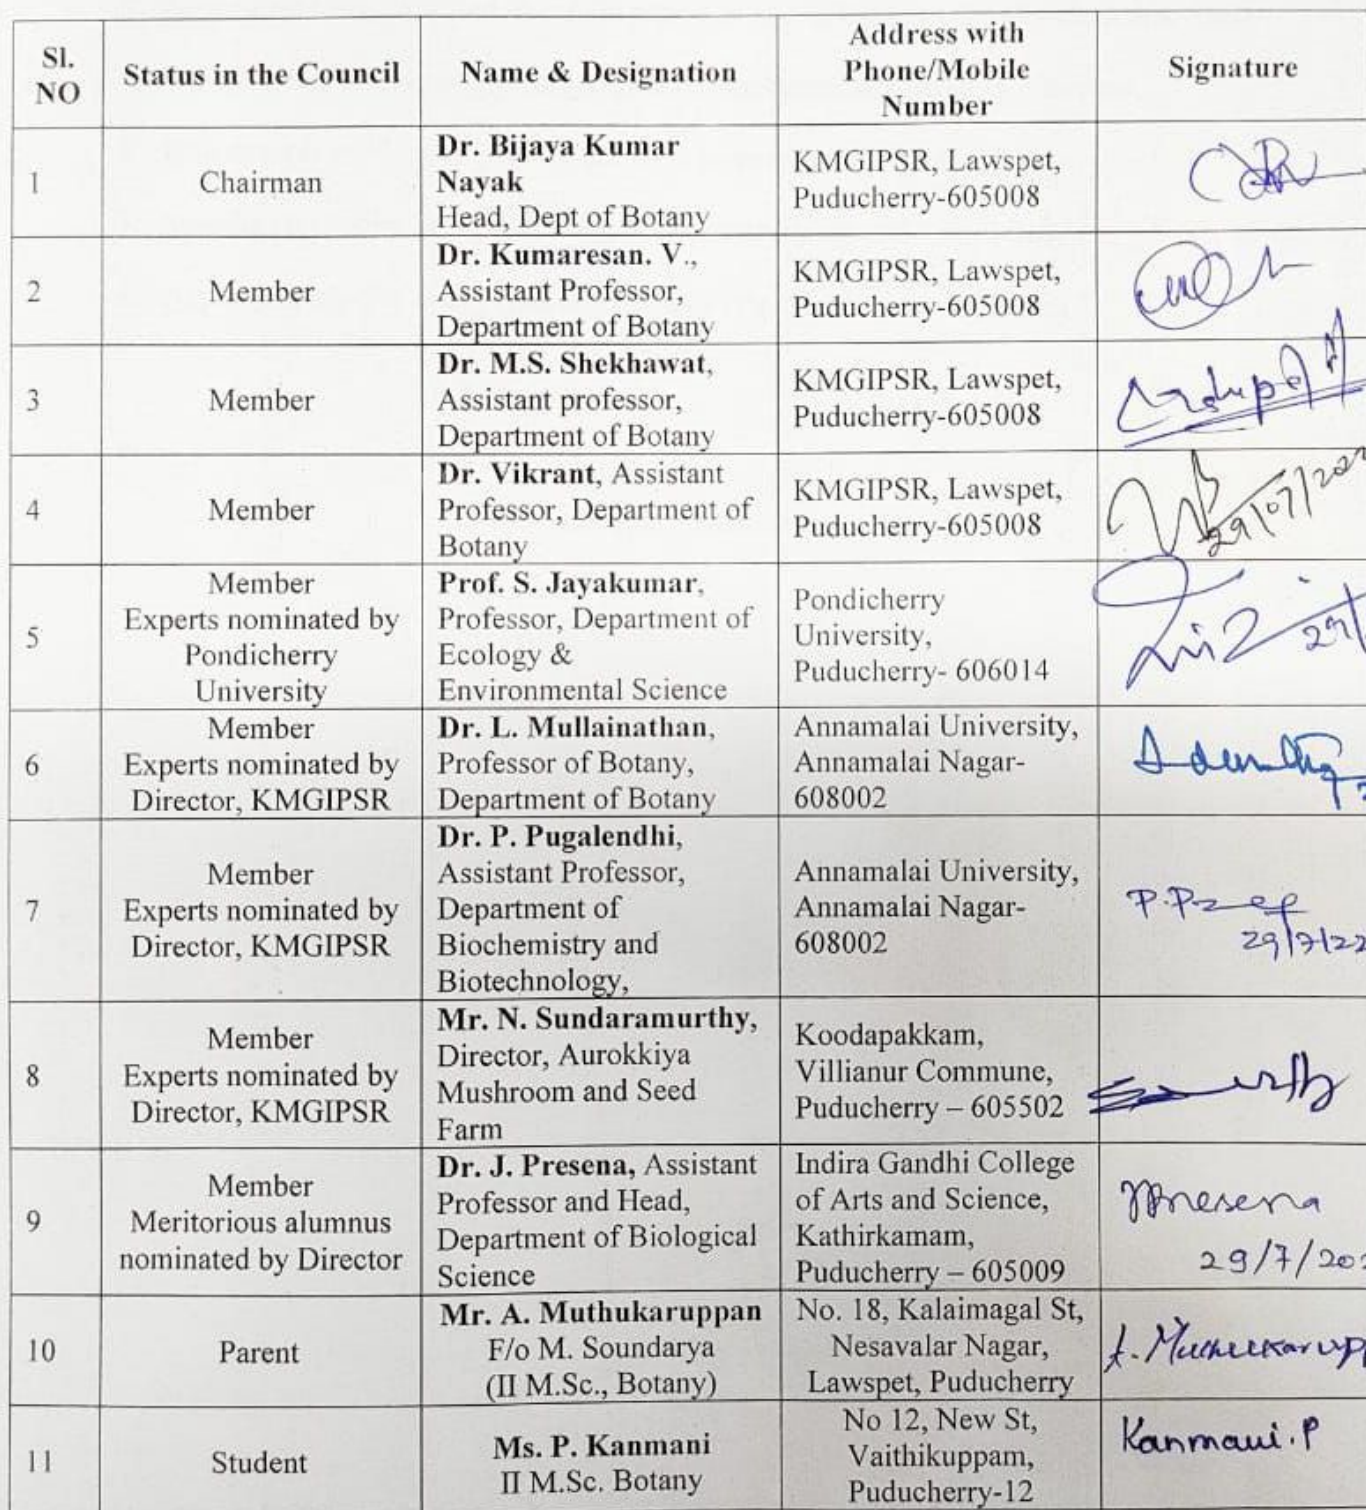 Sl.
NO
Status in the Council
Name & Designation
Address with
Phone/Mobile
Number
Signature
1
Chairman
Dr. Bijaya Kumar
Nayak
Head, Dept of Botany
KMGIPSR, Lawspet,
Puducherry-605008
2
Member
Dr. Kumaresan. V.,
Assistant Professor,
Department of Botany
KMGIPSR, Lawspet,
Puducherry-605008
3
Member
Dr. M.S. Shekhawat,
Assistant professor,
Department of Botany
KMGIPSR, Lawspet,
Puducherry-605008
4
Member
Dr. Vikrant, Assistant
Professor, Department of
Botany
KMGIPSR, Lawspet,
Puducherry-605008
29/07/202
5
Member
Experts nominated by
Pondicherry
University
Prof. S. Jayakumar,
Professor, Department of
Ecology &
Environmental Science
Pondicherry
University,
Puducherry- 606014
29/
6
Member
Experts nominated by
Director, KMGIPSR
Dr. L. Mullainathan,
Professor of Botany,
Department of Botany
Annamalai University,
Annamalai Nagar-
608002
7
Member
Experts nominated by
Director, KMGIPSR
Dr. P. Pugalendhi,
Assistant Professor,
Department of
Biochemistry and
Biotechnology,
Annamalai University,
Annamalai Nagar-
608002
29/7/22
8
Member
Experts nominated by
Director, KMGIPSR
Mr. N. Sundaramurthy,
Director, Aurokkiya
Mushroom and Seed
Farm
Koodapakkam,
Villianur Commune,
Puducherry – 605502
9
Member
Meritorious alumnus
nominated by Director
Dr. J. Presena, Assistant
Professor and Head,
Department of Biological
Science
Indira Gandhi College
of Arts and Science,
Kathirkamam,
Puducherry – 605009
29/7/202
10
Parent
Mr. A. Muthukaruppan
F/o M. Soundarya
(II M.Sc., Botany)
No. 18, Kalaimagal St,
Nesavalar Nagar,
Lawspet, Puducherry
11
Student
Ms. P. Kanmani
II M.Sc. Botany
No 12, New St,
Vaithikuppam,
Puducherry-12
Kanmani.P